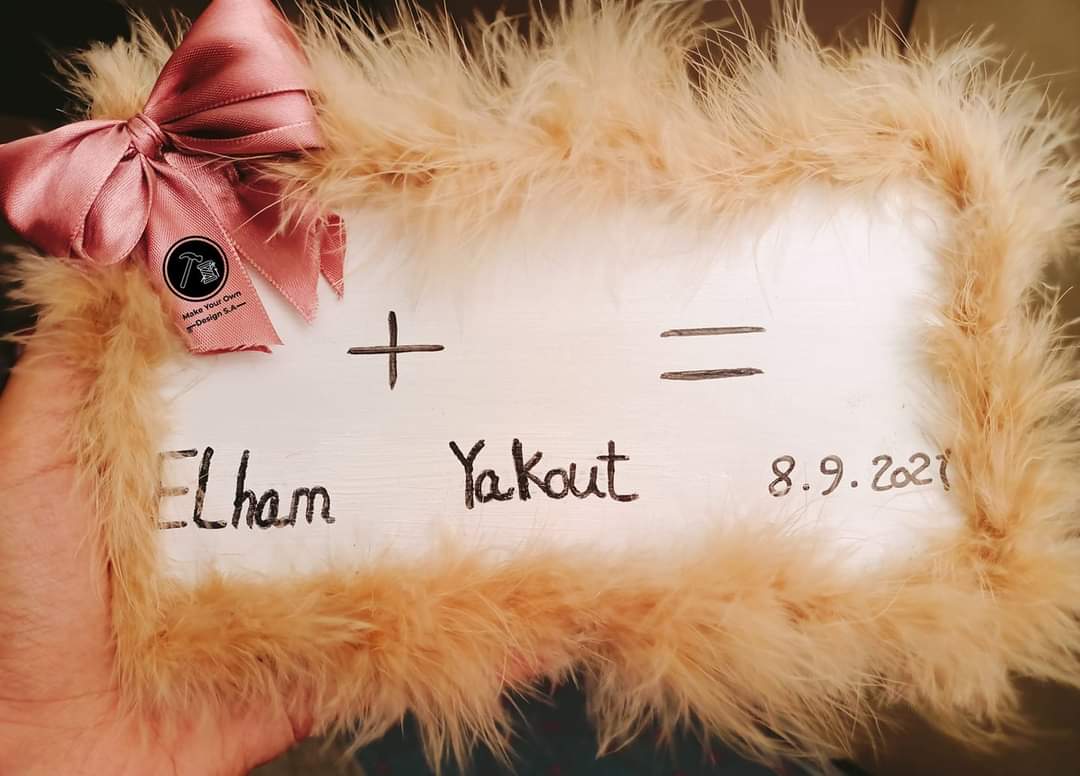 Make Your Own
Design S.A
+ =
ELham Yakout 8.9.2021